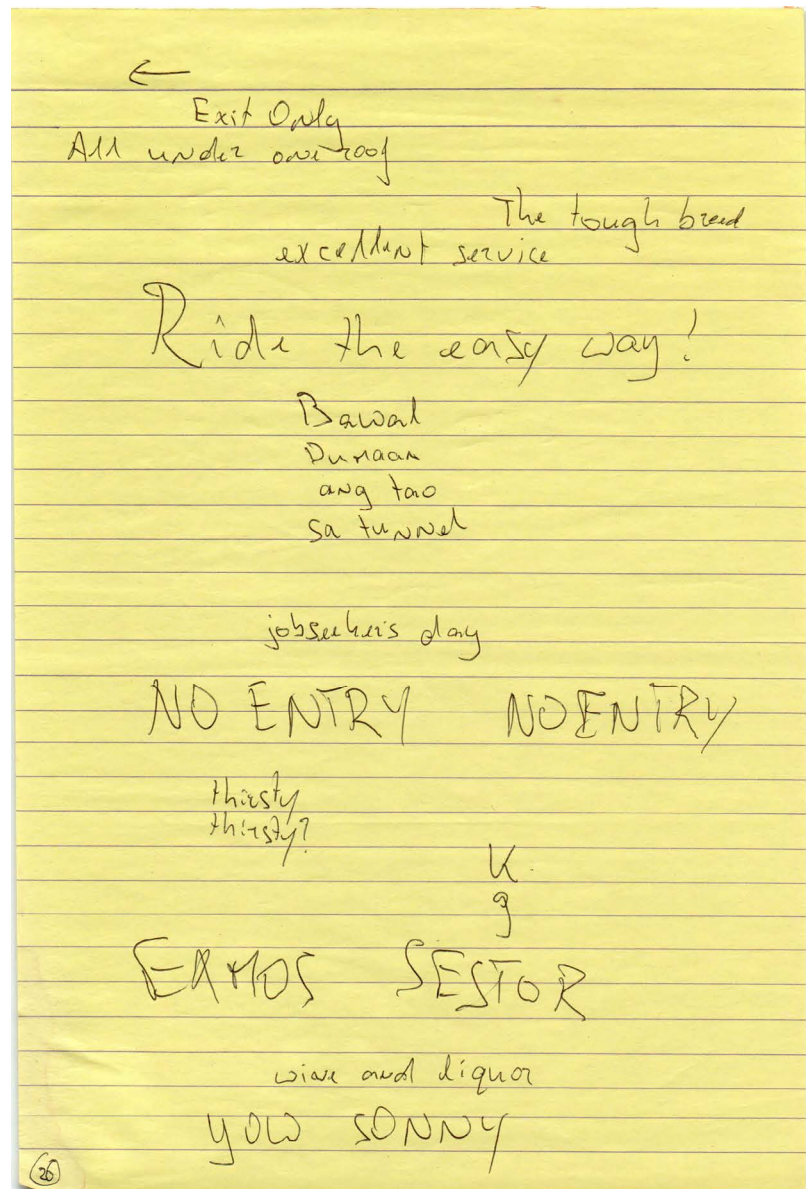 ←
Exit Only
All under one roof
The tough breed
excellent service
Ride the easy way!
Bawal
Dumaan
ang tao
sa tunnel
jobseeker's day
NO ENTRY NO ENTRY
thirsty
thirsty?
K
g
SESTOR
wine and liquor
YOW SONNY
26